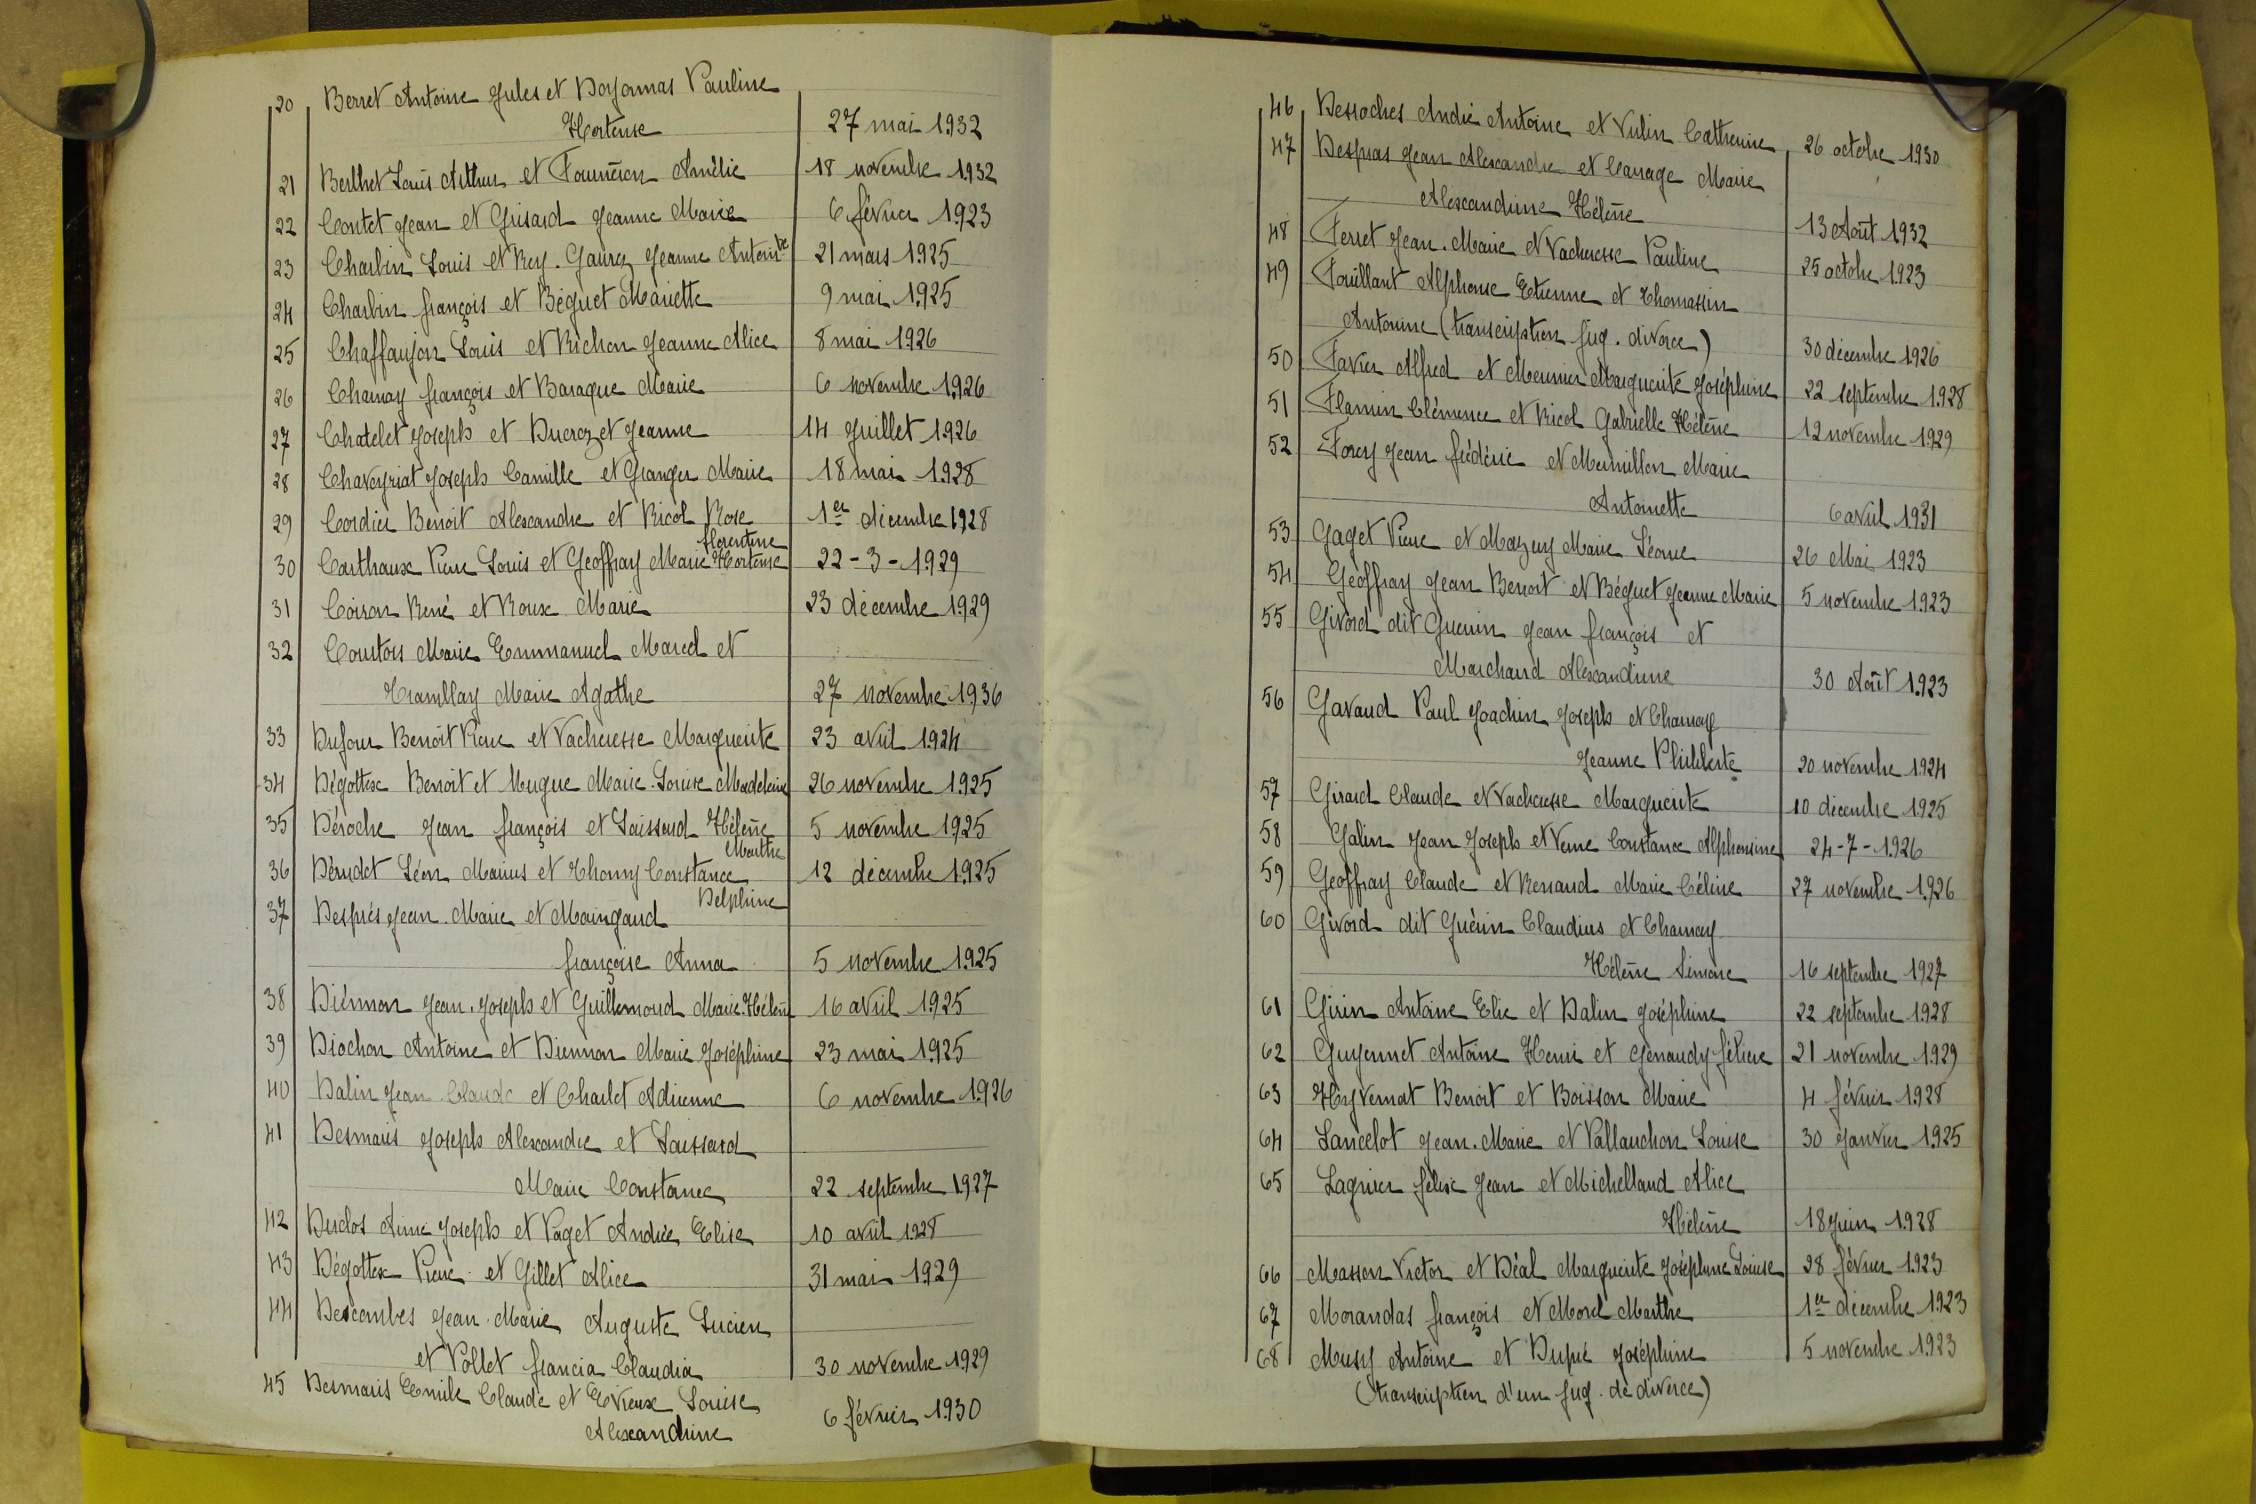 20 Berret Antoine Jules et Doyonnas Pauline
Hortense 27 mai 1932
21 Berthet Louis Arthur et Fournion Amélie 18 novembre 1932
22 Contet Jean et Grisard Jeanne Marie 6 février 1923
23 Charbin Louis et Rey-Gaurez Jeanne Antointe 21 mars 1925
24 Charbin François et Béguet Mariette 9 mai 1925
25 Chaffaujon Louis et Richon Jeanne Alice 8 mai 1926
26 Chamay François et Baraque Marie 6 novembre 1926
27 Chatelet Joseph et Ducrozet Jeanne 14 Juillet 1926
28 Chaveyriat Joseph Camille et Granger Marie 18 mai 1928
29 Cordier Benoit Alexandre et Ricol Rose 1er décembre 1928
Florentine
30 Carthaux Pierre Louis et Geoffray Marie Hortense 22-3-1929
31 Coiron René et Roux Marie 23 décembre 1929
32 Courtois Marie Emmanuel Marcel et
Tramblay Marie Agathe 27 novembre 1936
33 Dufour Benoît Pierre et Vacheresse Marguerite 23 avril 1924
34 Dégottex Benoît et Mugue Marie-Louise Madeleine 26 novembre 1925
35 Déroche Jean François et Laissard Hélène 5 novembre 1925
Marthe
36 Dérudet Léon Marius et Thomy Constance 12 décembre 1925
Delphine
37 Després Jean-Marie et Maingaud
Françoise Anna 5 novembre 1925
38 Diénnon Jean-Joseph et Guillemoud Marie-Hélène 16 avril 1925
39 Diochon Antoine et Diennon Marie Joséphine 23 mai 1925
40 Dalin Jean Claude et Charlet Adrienne 6 novembre 1926
41 Desmaris Joseph Alexandre et Laissard
Marie Constance 22 septembre 1927
42 Duclos Aimé Joseph et Paget Andrée Elise 10 avril 1928
43 Dégottex Pierre et Gillet Alice 31 mai 1929
44 Descombes Jean-Marie Auguste Lucien
et Pollet Francia Claudia 30 novembre 1929
45 Desmaris Emile Claude et Evieux Louise
Alexandrine 6 février 1930
46 Desroches André Antoine et Vulin Catherine 26 octobre 1930
47 Despras Jean Alexandre et Carrage Marie
Alexandrine Hélène 13 Août 1932
48 Ferret Jean-Marie et Vacheresse Pauline 25 octobre 1923
49 Fouillant Alphonse Etienne et Thomassin
Antonine (transcription jug. divorce) 30 décembre 1926
50 Favier Alfred et Meunier Marguerite Joséphine 22 septembre 1928
51 Flamin Clémence et Ricol Gabrielle Hélène 12 novembre 1929
52 Forey Jean Frédéric et Mermillon Marie
Antoinette 6 avril 1931
53 Gaget Pierre et Mazuy Marie Léonie 26 Mai 1923
54 Geoffray Jean Benoit et Béguet Jeanne Marie 5 novembre 1923
55 Givord dit Guerin Jean François et
Marchand Alexandrine 30 Août 1923
56 Gavaud Paul Joachin Joseph et Chamay
Jeanne Philiberte 20 novembre 1924
57 Girard Claude et Vacheresse Marguerite 10 décembre 1925
58 Galin Jean Joseph et Verne Constance Alphonsine 24-7-1926
59 Geoffray Claude et Renaud Marie Céline 27 novembre 1926
60 Givord dit Guérin Claudius et Chamay
Hélène Simone 16 septembre 1927
61 Girin Antoine Elie et Dalin Joséphine 22 septembre 1928
62 Guyennet Antoine Henri et Génaudy Félicie 21 novembre 1929
63 Hyvernat Benoit et Boisson Marie 4 février 1928
64 Lancelot Jean-Marie et Pallauchon Louise 30 Janvier 1925
65 Lagnier Félix Jean et Michelland Alice
Hélène 18 Juin 1928
66 Masson Victor et Déal Marguerite Joséphine Louise 28 février 1923
67 Morandas François et Morel Marthe 1er décembre 1923
68 Musy Antoine et Dupré Joséphine 5 novembre 1923
(transcription d'un jug. de divorce)